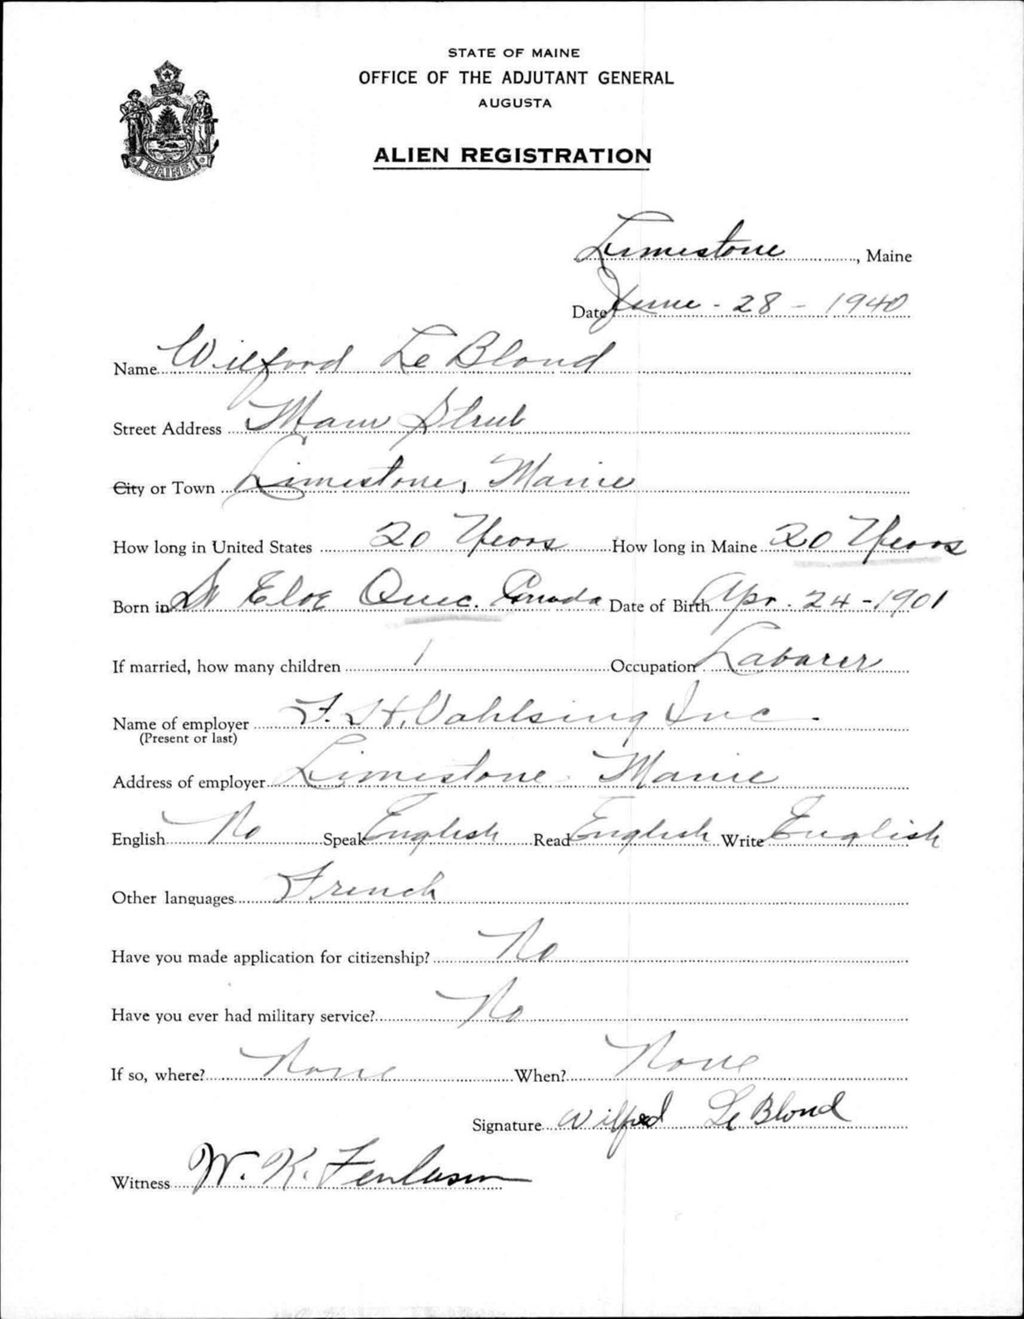 STATE OF MAINE
OFFICE OF THE ADJUTANT GENERAL
AUGUSTA
MAINE
ALIEN REGISTRATION
Limestone, Maine
Date June - 28 - 1940
Name Wilford Le Blond
Street Address Main Street
City or Town Limestone, Maine
How long in United States 20 Years How long in Maine 20 Years
Born in St Eloe Quec. Canada Date of Birth Apr. 24 - 1901
If married, how many children 1 Occupation Labarer
Name of employer F. H. Vahlsing Inc.
(Present or last)
Address of employer Limestone Maine
English No Speak English Read English Write English
Other languages French
Have you made application for citizenship? No
Have you ever had military service? No
If so, where? None When? None
Signature Wilfred Le Blond
Witness W. K.